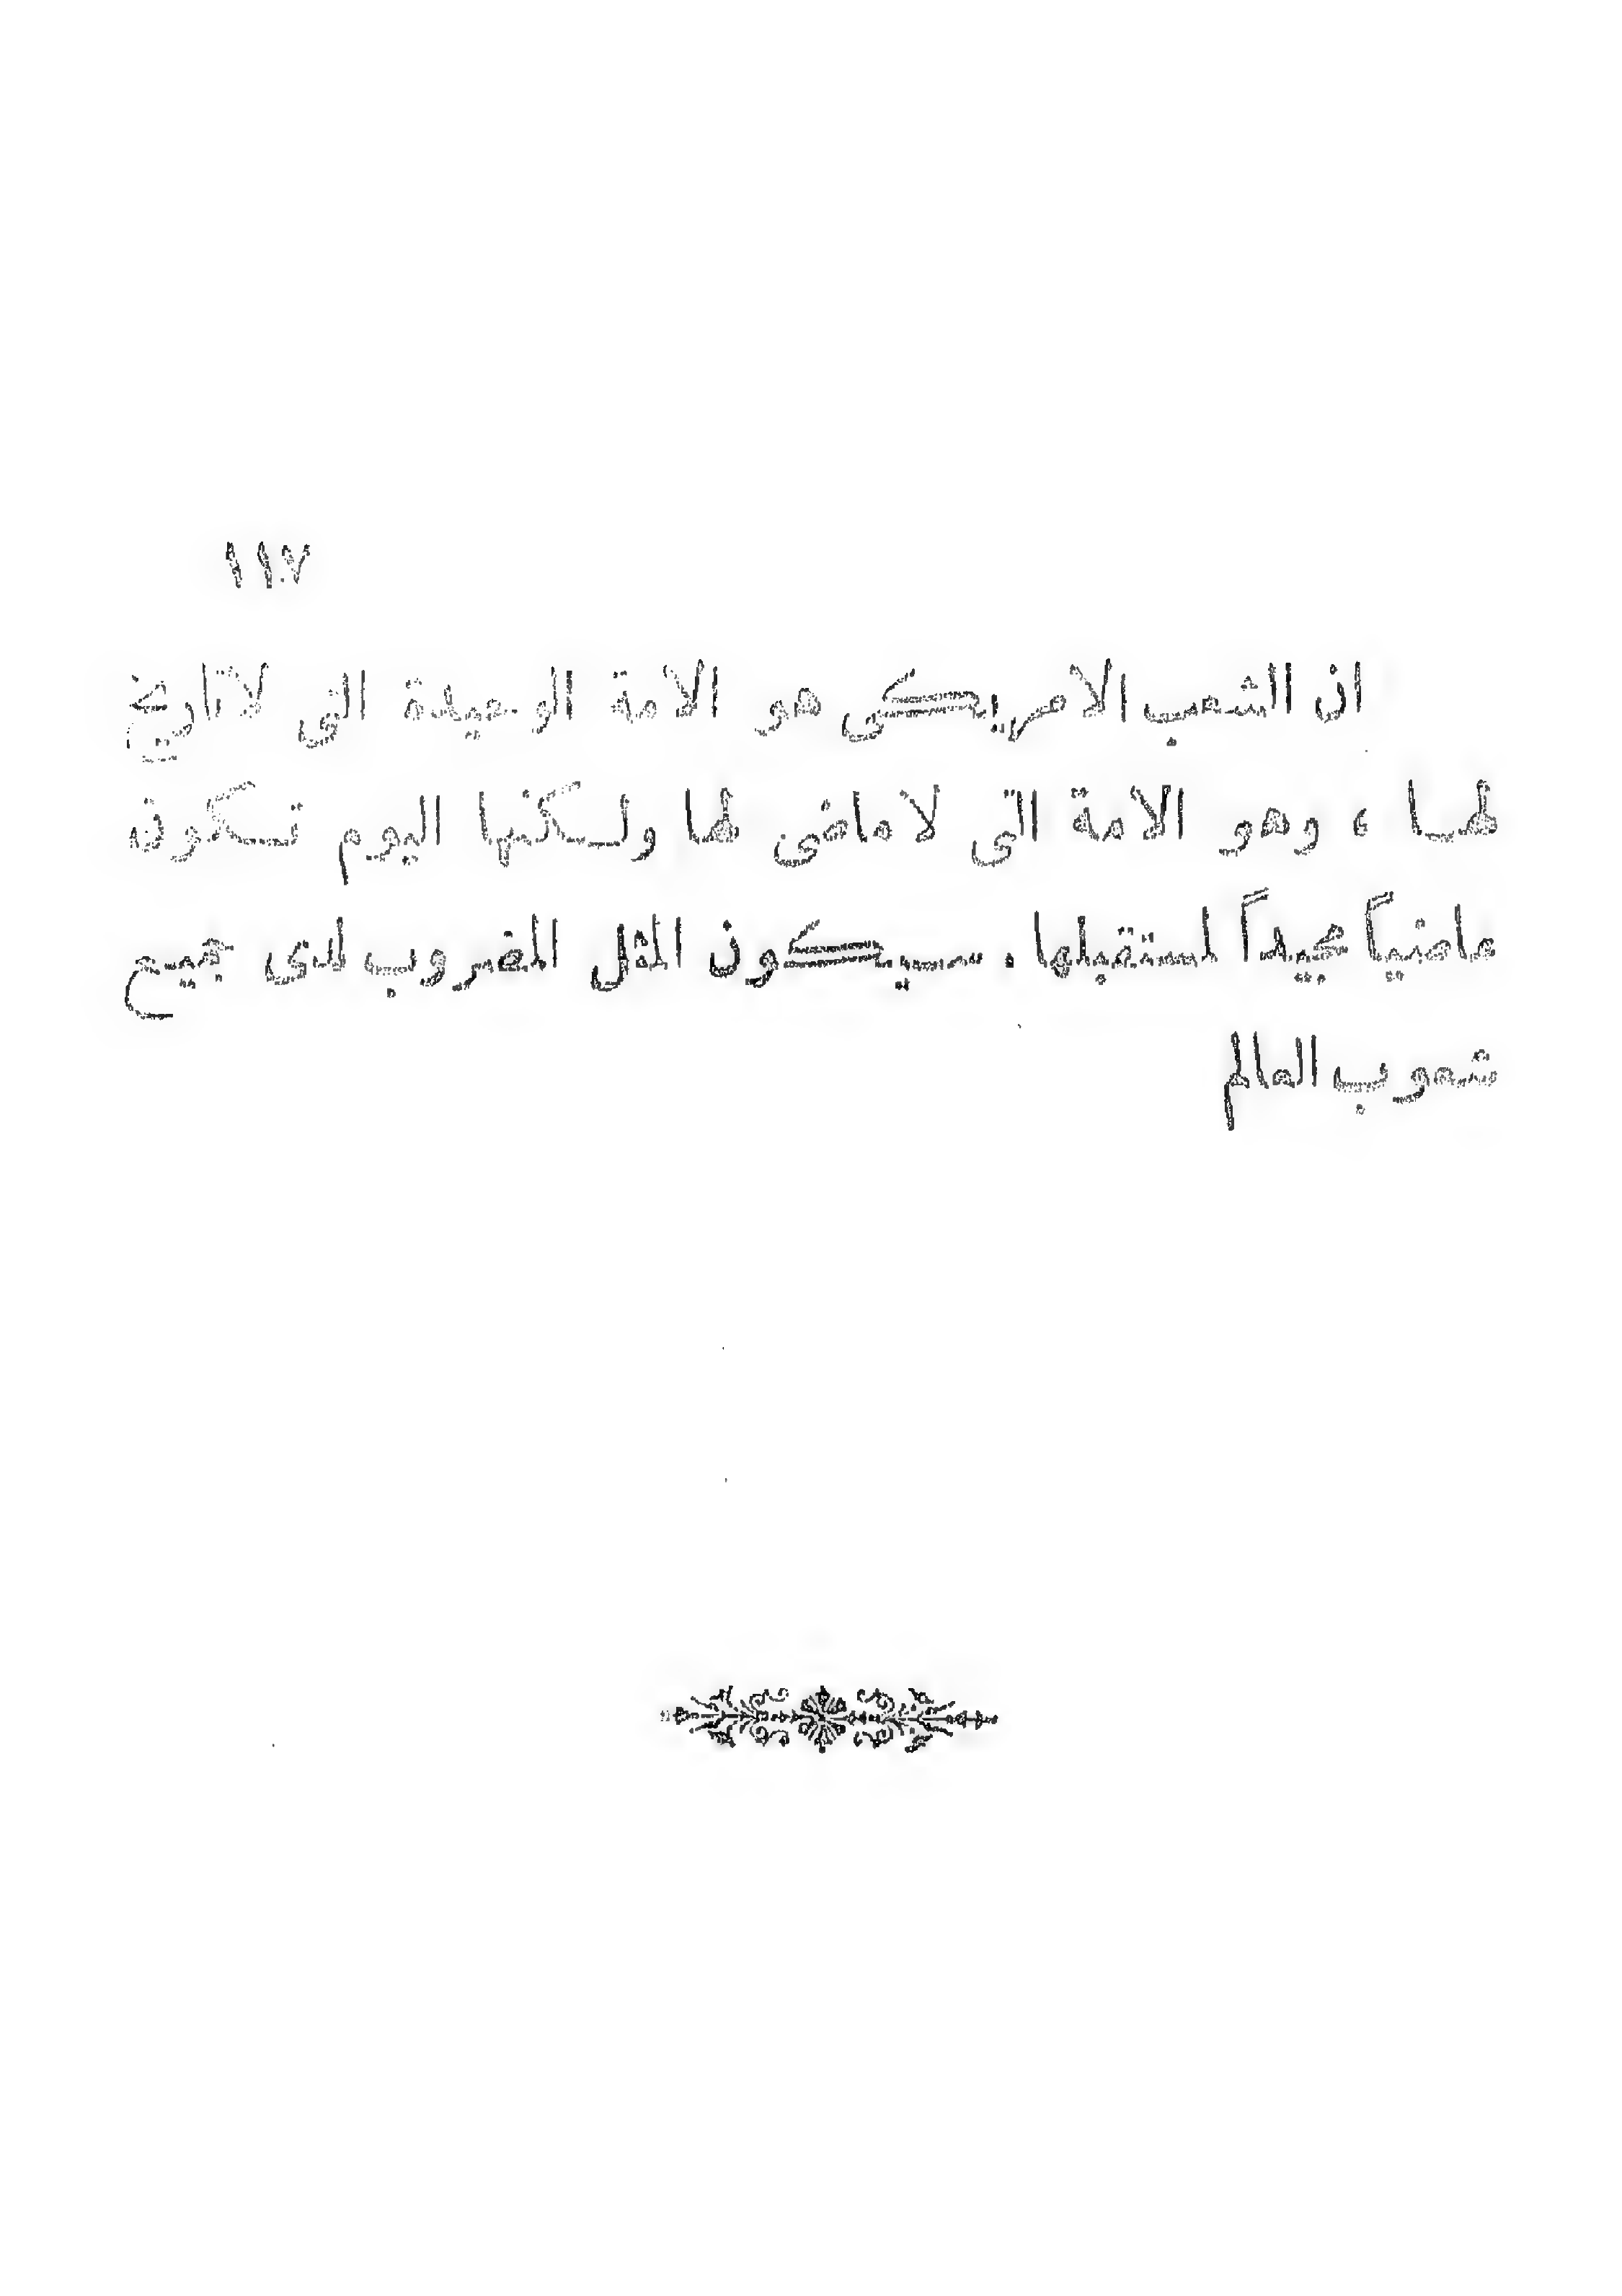 ١١٧
ان الشعب الامريكى هو الامة الوحيدة التى لاتاريخ
لهـا ، وهو الامة التى لا ماضى لها ولـكنها اليوم تـكون
ماضياً مجيداً لمستقبلها . سيكون المثل المضروب لدى جميع
شعوب العالم